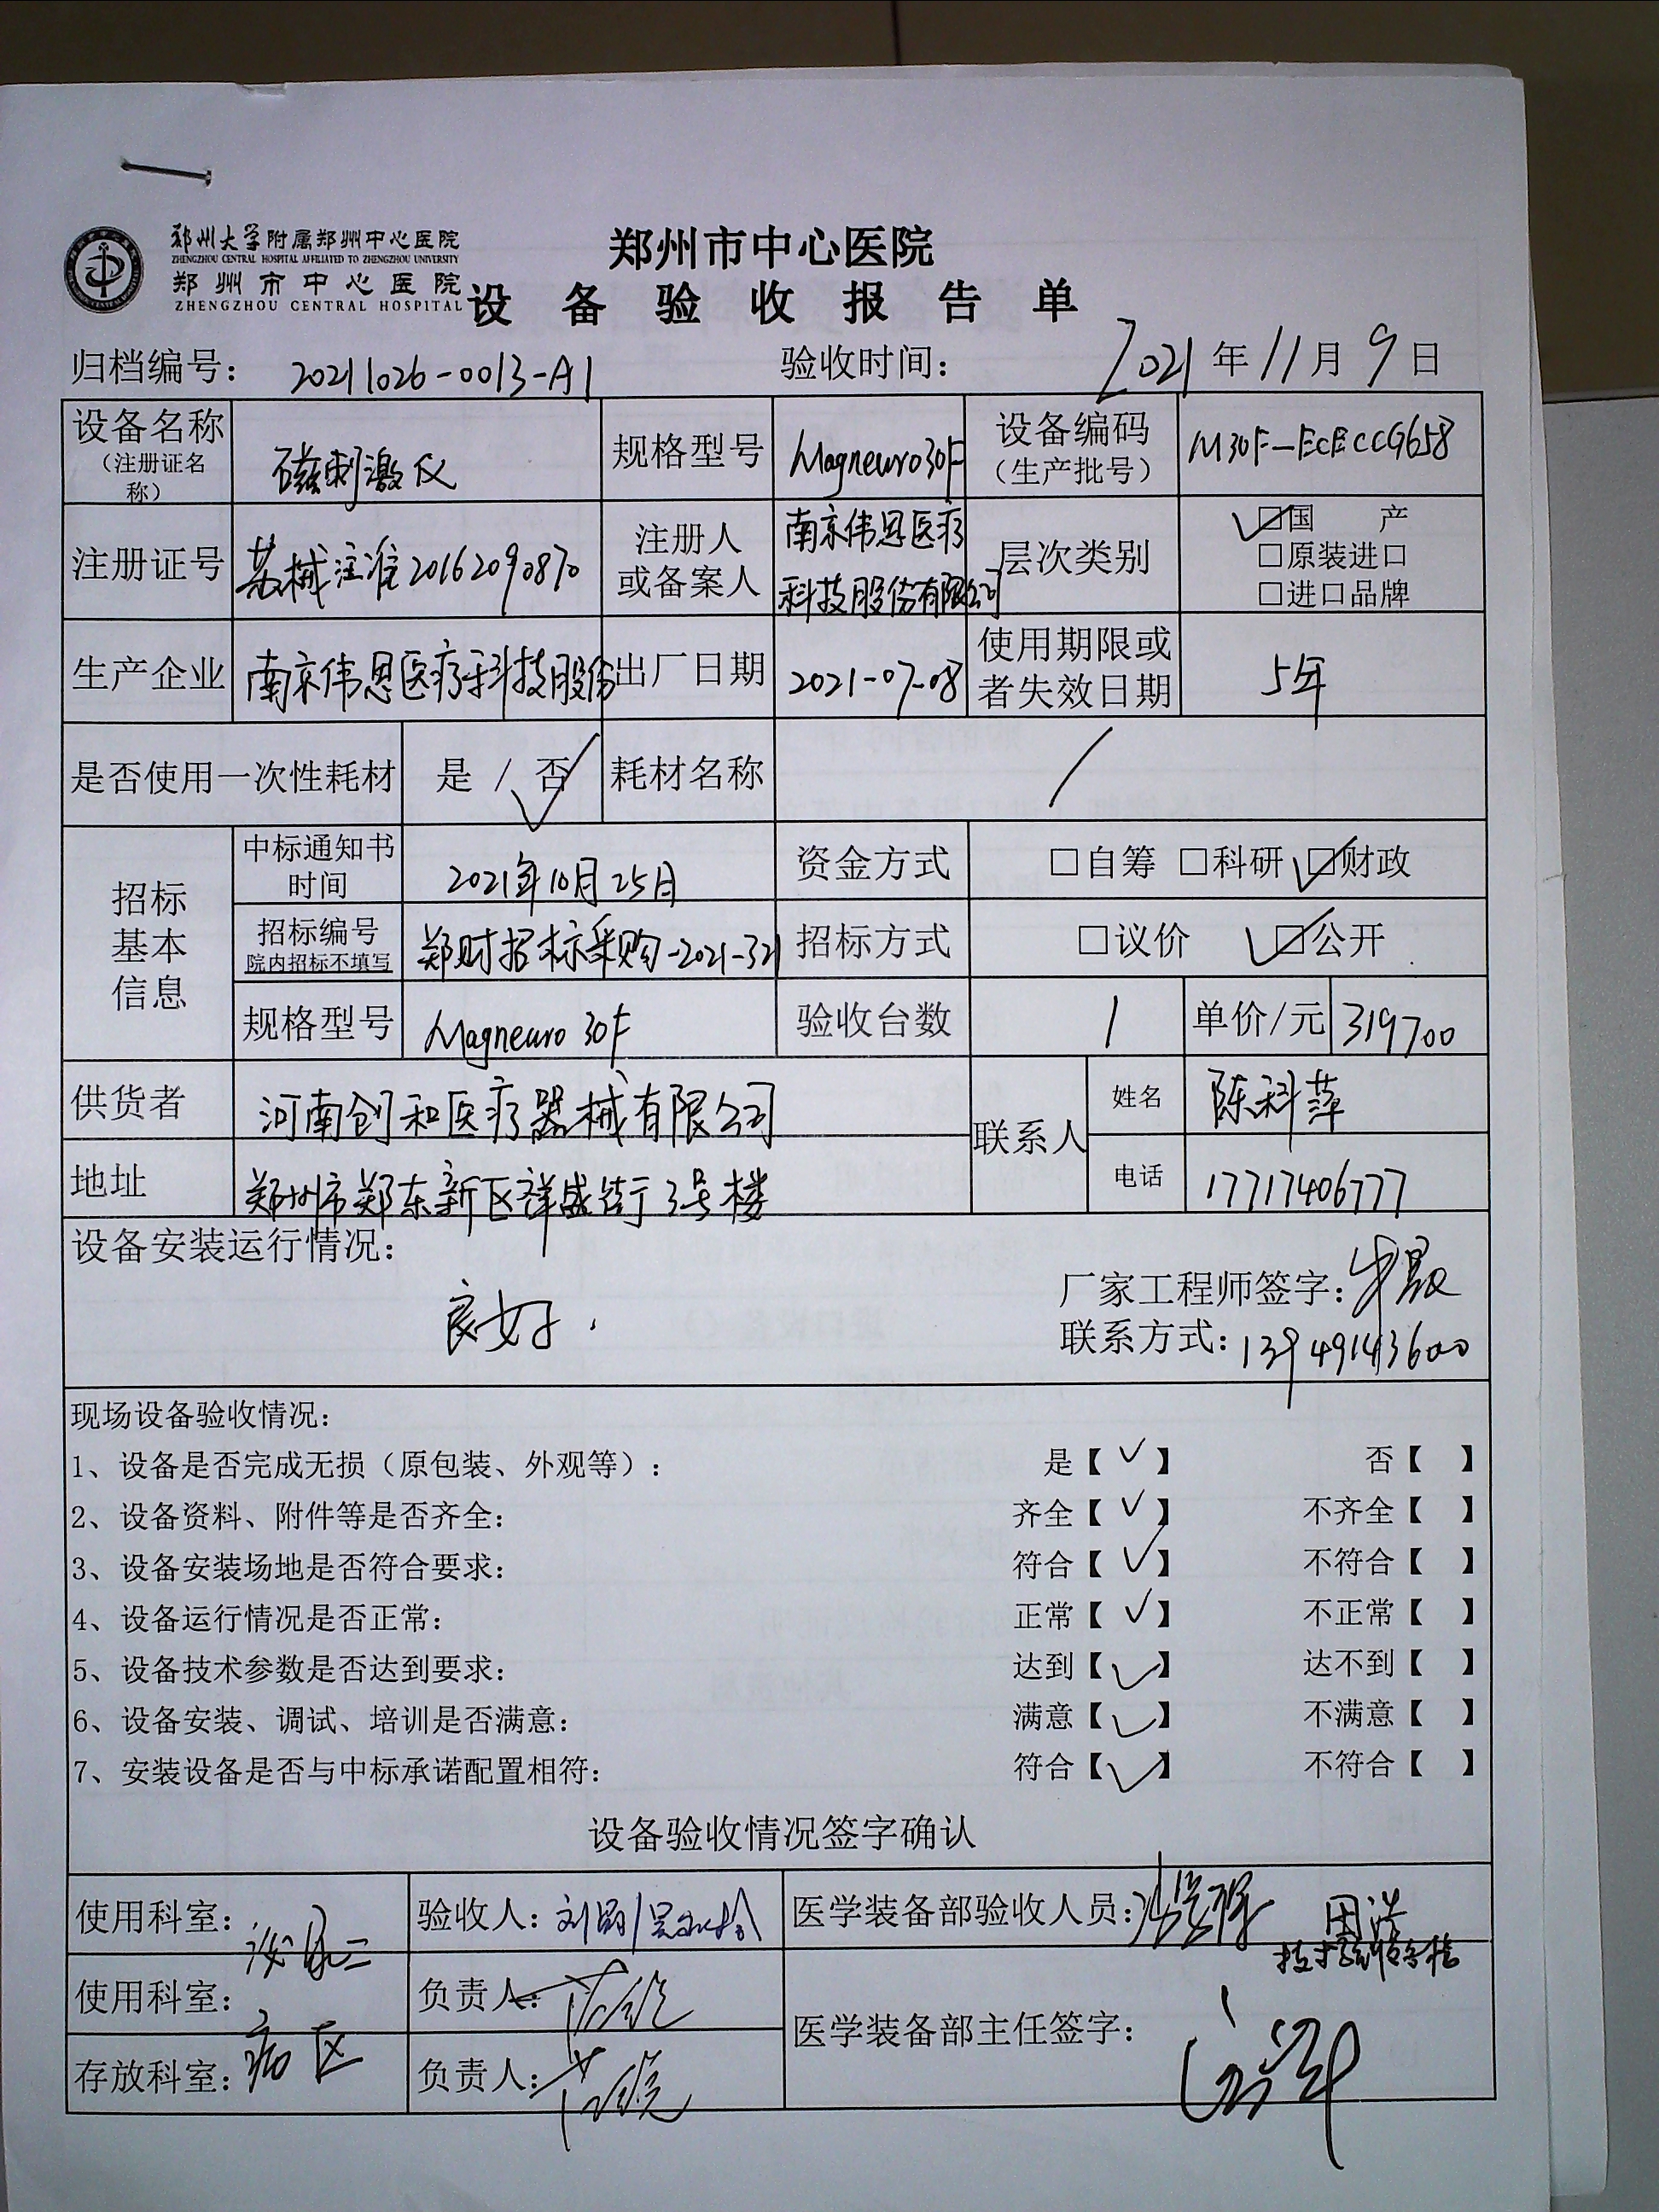 郑州大学附属郑州中心医院
ZHENGZHOU CENTRAL HOSPITAL AFFILIATED TO ZHENGZHOU UNIVERSITY
郑州市中心医院
ZHENGZHOU CENTRAL HOSPITAL
郑州市中心医院
设备验收报告单
归档编号：20211026-0013-A1 验收时间：2021年11月9日
设备名称（注册证名称） 磁刺激仪 规格型号 Magneuro30F 设备编码（生产批号） M30F-ECECCG658
注册证号 苏械注准20162090870 注册人或备案人 南京伟思医疗科技股份有限公司 层次类别 ☑国 产 □原装进口 □进口品牌
生产企业 南京伟思医疗科技股份 出厂日期 2021-07-08 使用期限或者失效日期 5年
是否使用一次性耗材 是 / 否√ 耗材名称 /
招标基本信息
中标通知书时间 2021年10月25日 资金方式 □自筹 □科研 ☑财政
招标编号 院内招标不填写 郑财招标采购-2021-321 招标方式 □议价 ☑公开
规格型号 Magneuro 30F 验收台数 1 单价/元 319700
供货者 河南创和医疗器械有限公司 联系人 姓名 陈科萍
地址 郑州市郑东新区祥盛街3号楼 电话 17717406777
设备安装运行情况：
良好.
厂家工程师签字：
联系方式：13949143600
现场设备验收情况：
1、设备是否完成无损（原包装、外观等）： 是【√】 否【 】
2、设备资料、附件等是否齐全： 齐全【√】 不齐全【 】
3、设备安装场地是否符合要求： 符合【√】 不符合【 】
4、设备运行情况是否正常： 正常【√】 不正常【 】
5、设备技术参数是否达到要求： 达到【√】 达不到【 】
6、设备安装、调试、培训是否满意： 满意【√】 不满意【 】
7、安装设备是否与中标承诺配置相符： 符合【√】 不符合【 】
设备验收情况签字确认
使用科室： 验收人： 医学装备部验收人员：
使用科室： 负责人： 医学装备部主任签字：
存放科室：病区 负责人：